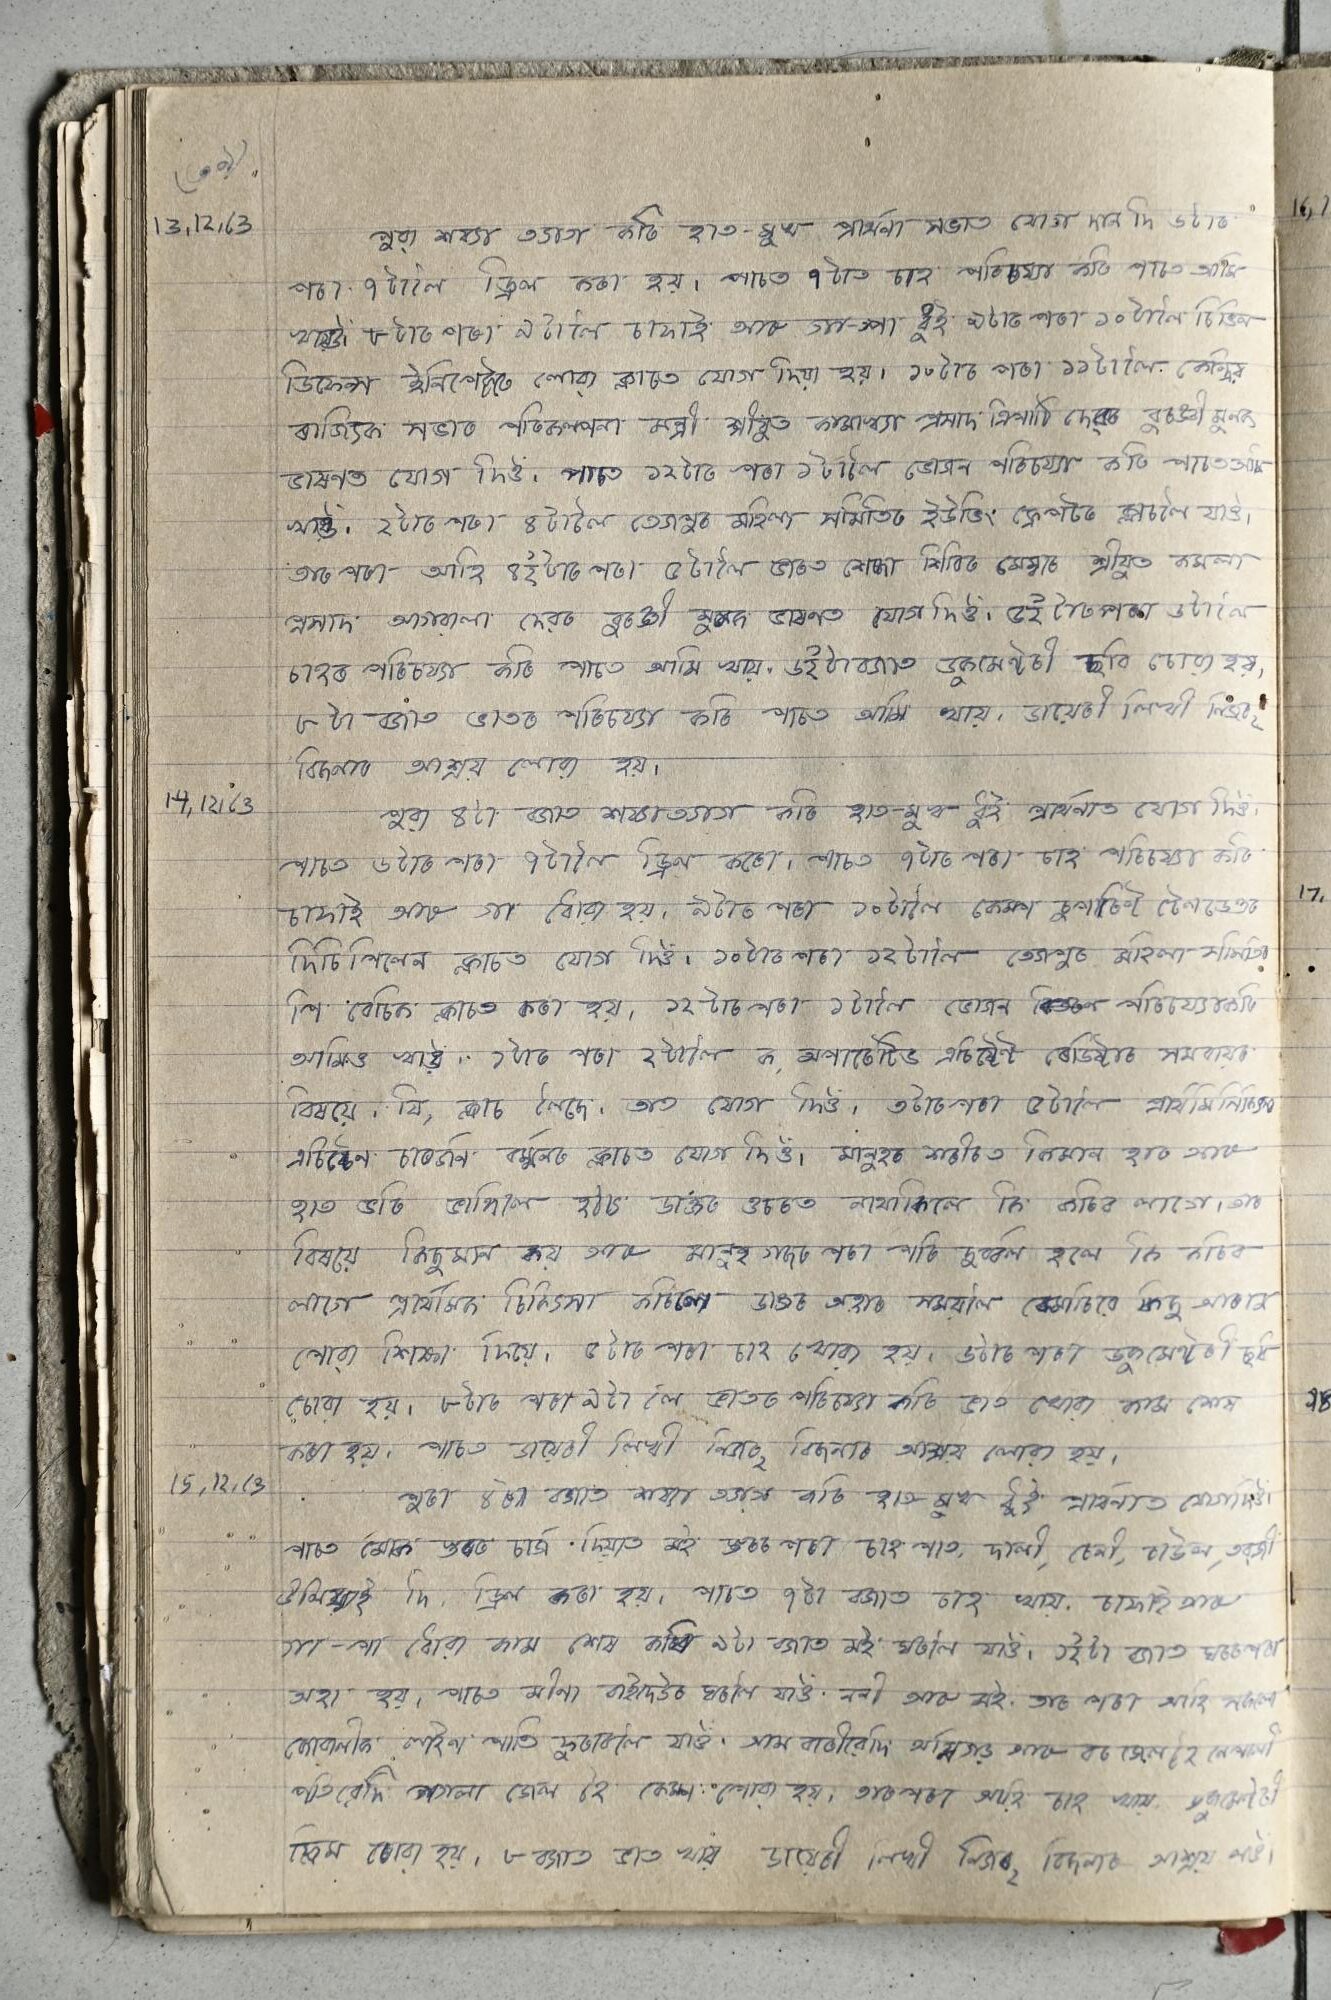 (৩৯)
13,12,63
পুৱা শয্যা ত্যাগ কৰি হাত-মুখ প্ৰাৰ্থনা সভাত যোগ দান দি ৬টাৰ
পৰা ৭টালৈ ড্ৰিল কৰা হয়। পাচত ৭টাত চাহ পৰিচৰ্য্যা কৰি পাচত আমি
খাওঁ। ৮টাৰ পৰা ৯টালৈ চাফাই আৰু গা-পা ধুই ৯টাৰ পৰা ১০টালৈ চিভিল
ডিফেন্স লোৱা ক্লাচত যোগ দিয়া হয়। ১০টাৰ পৰা ১১টালৈ কেন্দ্ৰিয়
সভাৰ পৰিকল্পনা মন্ত্ৰী শ্ৰীযুত কামাখ্যা প্ৰসাদ ত্ৰিপাঠি দেৱৰ বুৰঞ্জী মুলক
ভাষণত যোগ দিওঁ। পাচত ১২টাৰ পৰা ১টালৈ ভোজন পৰিচৰ্য্যা কৰি পাচত আমি
খাওঁ। ২টাৰ পৰা ৪টালৈ তেজপুৰ মহিলা সমিতিৰ ইউভিং ক্লাচলৈ যাওঁ।
তাৰ পৰা আহি ৪ইটাৰ পৰা ৫টালৈ ভাৰত সেৱা শিবিৰ মেম্বাৰ শ্ৰীযুত কমলা
প্ৰসাদ আগৰৱালা দেৱৰ বুৰঞ্জী মুলক ভাষণত যোগ দিওঁ। ৫ইটাৰ পৰা ৬টালৈ
চাহৰ পৰিচৰ্য্যা কৰি পাচত আমি খায়। ৬ইটা বজাত ডকুমেণ্টৰী ছবি চোৱা হয়,
৮ টা বজাত ভাতৰ পৰিচৰ্য্যা কৰি পাচত আমি খায়। ডায়েৰী লিখী নিজৰ
বিছনাৰ আশ্ৰয় লোৱা হয়।
14,12,63
পুৱা ৪টা বজাত শয্যাত্যাগ কৰি হাত-মুখ ধুই প্ৰাৰ্থনাত যোগ দিওঁ।
পাচত ৬টাৰ পৰা ৭টালৈ ড্ৰিল কৰো। পাচত ৭টাৰ পৰা চাহ পৰিচৰ্য্যা কৰি
চাফাই আৰু গা ধোৱা হয়। ৯টাৰ পৰা ১০টালৈ কেম্প
দিচিপ্লিনেৰ ক্লাচত যোগ দিওঁ। ১০টাৰ পৰা ১২টালৈ তেজপুৰ মহিলা সমিতিৰ
বেচিক ক্লাচত কৰা হয়, ১২টাৰ পৰা ১টালৈ ভোজন পৰিচৰ্য্যা কৰি
আমিও খাওঁ। ১টাৰ পৰা ২টালৈ ক, অপাৰেটিভ এচিষ্টেণ্ট ৰেজিষ্টাৰ সমবায়ৰ
বিষয়ে। যি, ক্লাচ লৈছে। তাত যোগ দিওঁ। ৩টাৰ পৰা ৫টালৈ
ক্লাচত যোগ দিওঁ। মানুহৰ শৰীৰত কিমান হাৰ আৰু
হাত ভৰি ভাঙিলে হঠাৎ ডাক্তৰ ওচৰত নাথাকিলে কি কৰিব লাগে। তাৰ
বিষয়ে কিছুমান কয় আৰু মানুহ গছৰ পৰা পৰি দুৰ্ব্বল হলে কি কৰিব
লাগে প্ৰাথমিক চিকিৎসা ডাক্তৰ অহাৰ সময়লৈ কিছু আৰাম
পোৱা শিক্ষা দিয়ে। ৫টাৰ পৰা চাহ খোৱা হয়। ৬টাৰ পৰা ডকুমেণ্টৰী ছবি
চোৱা হয়। ৮টাৰ পৰা ৯টা লৈ ভাতৰ পৰিচৰ্য্যা কৰি ভাত খোৱা কাম শেষ
কৰা হয়। পাচত ডায়েৰী লিখী নিজৰ বিছনাৰ আশ্ৰয় লোৱা হয়।
15,12,63
পুৱা ৪টা বজাত শয্যা ত্যাগ কৰি হাত মুখ ধুই প্ৰাৰ্থনাত যোগ দিওঁ।
পাচত মোক চাৰ্জ দিয়াত মই পৰা চাহ পাত, দালী, চেনী, চাউল,
উলিয়াই দি, ড্ৰিল কৰা হয়। পাচত ৭টা বজাত চাহ খায়। চাফাই আৰু
গা-পা ধোৱা কাম শেষ কৰি ৯টা বজাত মই ঘৰলৈ যাওঁ। ১ইটা বজাত ঘৰৰ পৰা
অহা হয়, পাচত মীনা বাইদেউৰ ঘৰলৈ যাওঁ আৰু মই। তাৰ পৰা আহি সকলো
লাইন পাতি ফুৰাবলৈ যাওঁ। আৰু বৰ জেল হৈ
পাগলা জেল হৈ কেম্প পোৱা হয়, তাৰ পৰা আহি চাহ খায়। ডকুমেণ্টৰী
ফ্লিম চোৱা হয়, ৮ বজাত ভাত খায় ডায়েৰী লিখী নিজৰ বিছনাৰ আশ্ৰয় লওঁ।
16,1
17,
18